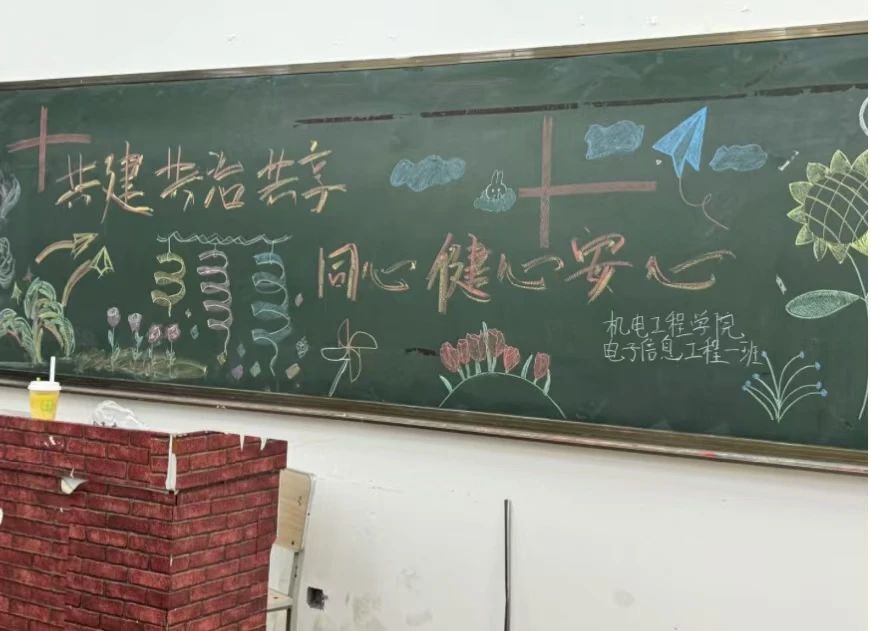 共建共治共享
同心健心安心
机电工程学院
电子信息工程一班